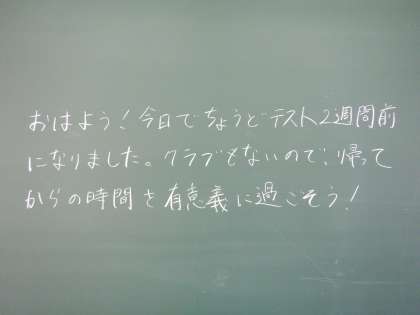 おはよう！今日でちょうどテスト2週間前
になりました。クラブもないので、帰って
からの時間を有意義に過ごそう！